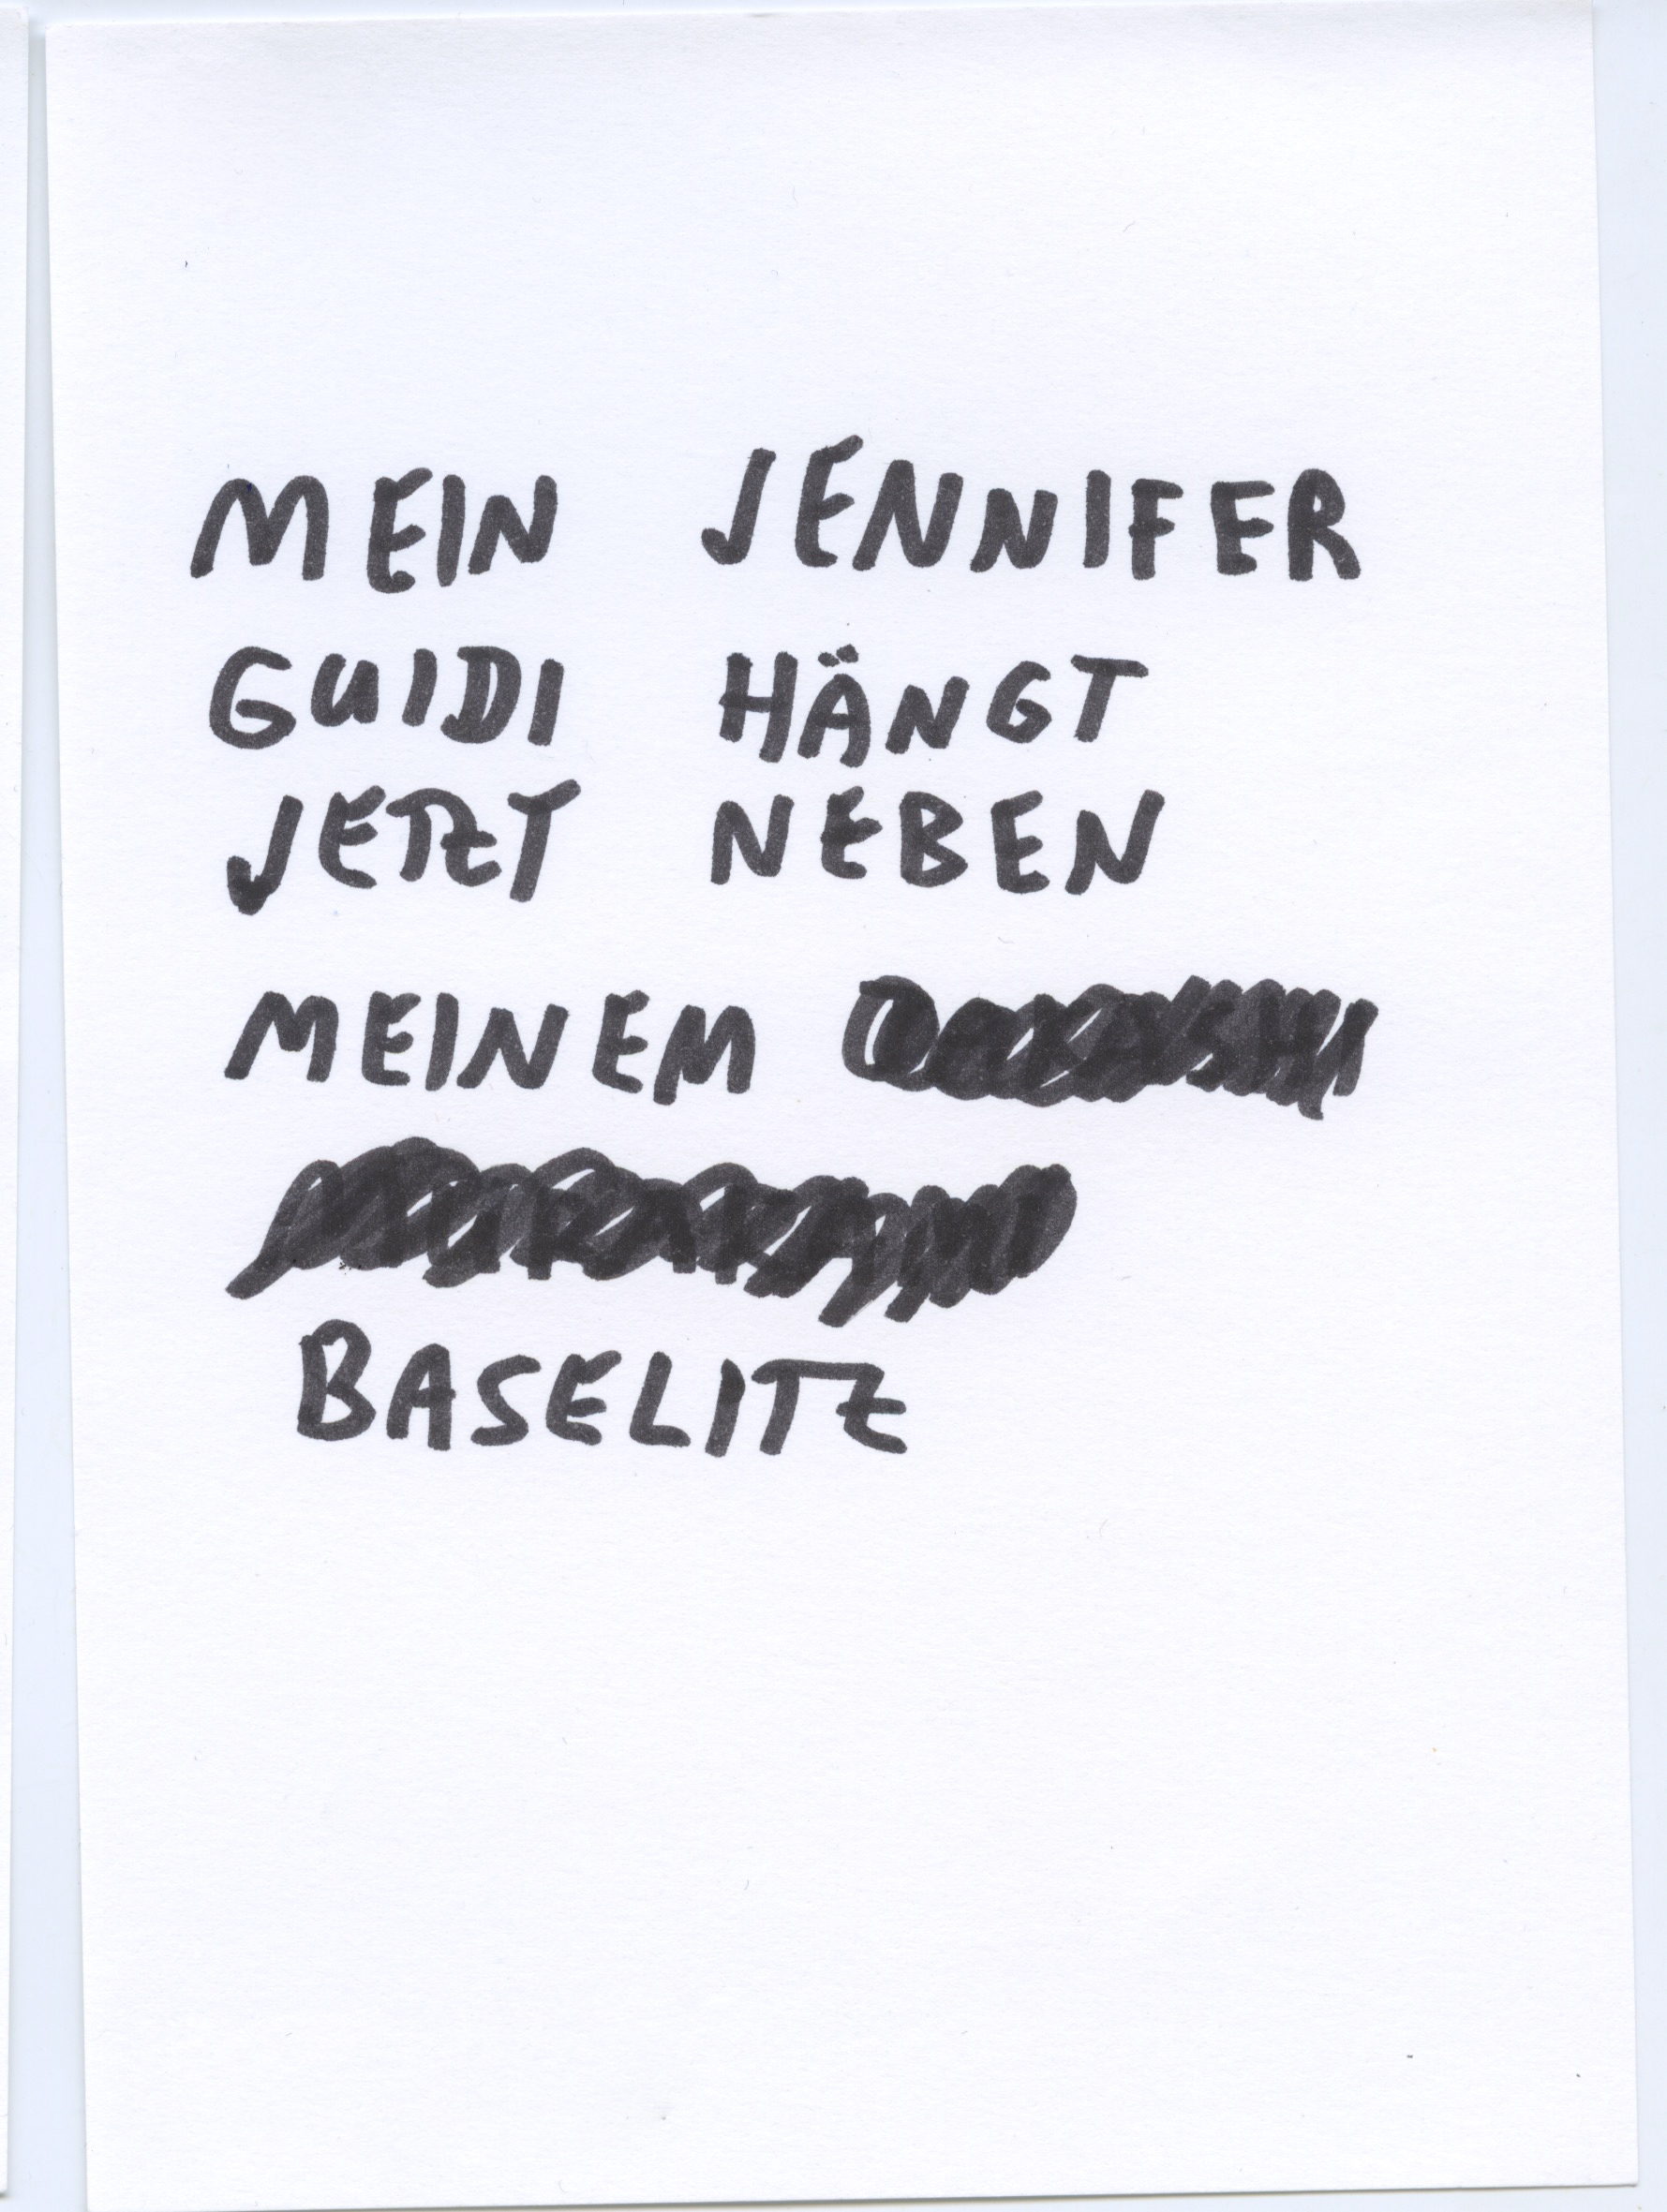 MEIN JENNIFER
GUIDI HÄNGT
JETZT NEBEN
MEINEM
BASELITZ